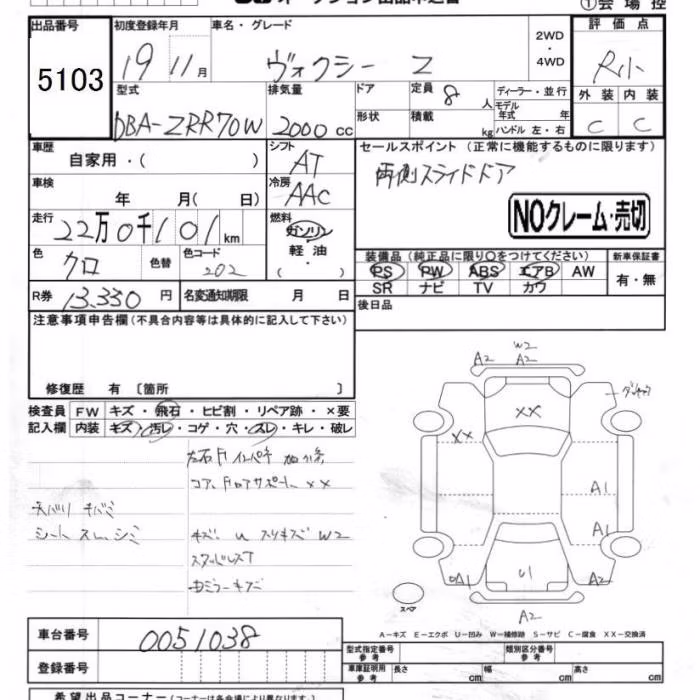 ①会場控
出品番号 初度登録年月 車名・グレード 2WD ・ 4WD 評価点
5103 19 11月 ヴォクシー Z R小
型式 排気量 ドア 定員 8 人 ディーラー・並行 外装 内装
DBA-ZRR70W 2000cc 形状 積載 kg モデル年式 年 ハンドル 左・右 C C
車歴 自家用・( ) シフト AT セールスポイント (正常に機能するものに限ります)
両側スライドドア
車検 年 月( 日) 冷房 AAC
NOクレーム・売切
走行 22万0千101km 燃料 ガソリン 軽・油 ( ・ )
色 クロ 色替 色コード 202
装備品 (純正品に限り○をつけてください) 新車保証書
PS PW ABS エアB AW 有・無
SR ナビ TV カワ
R券 13.330 円 名変通知期限 月 日 後日品
注意事項申告欄(不具合内容等は具体的に記入して下さい)
修復歴 有 〔箇所 〕
検査員 FW キズ・飛石・ヒビ割・リペア跡・×要
記入欄 内装 キズ・汚レ・コゲ・穴・スレ・キレ・破レ
コアサポート ××
シート スレ、シミ
キズ. U スリキズ W2
スタッドレスT
W2
A2 A2
××
××
A1
A1
A1
U1
A2
スペア
A-キズ E-エクボ U-凹み W-補修跡 S-サビ C-腐食 XX-交換済
車台番号 0051038
登録番号
型式指定番号 参考 類別区分番号 参考
車庫証明用 参考 長さ cm 幅 cm 高さ cm
希望出品コーナー(コーナーは各会場により異なります)